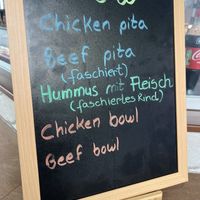 Chicken pita
Beef pita
(faschiert)
Hummus mit Fleisch
(faschiertes Rind)
Chicken bowl
Beef bowl